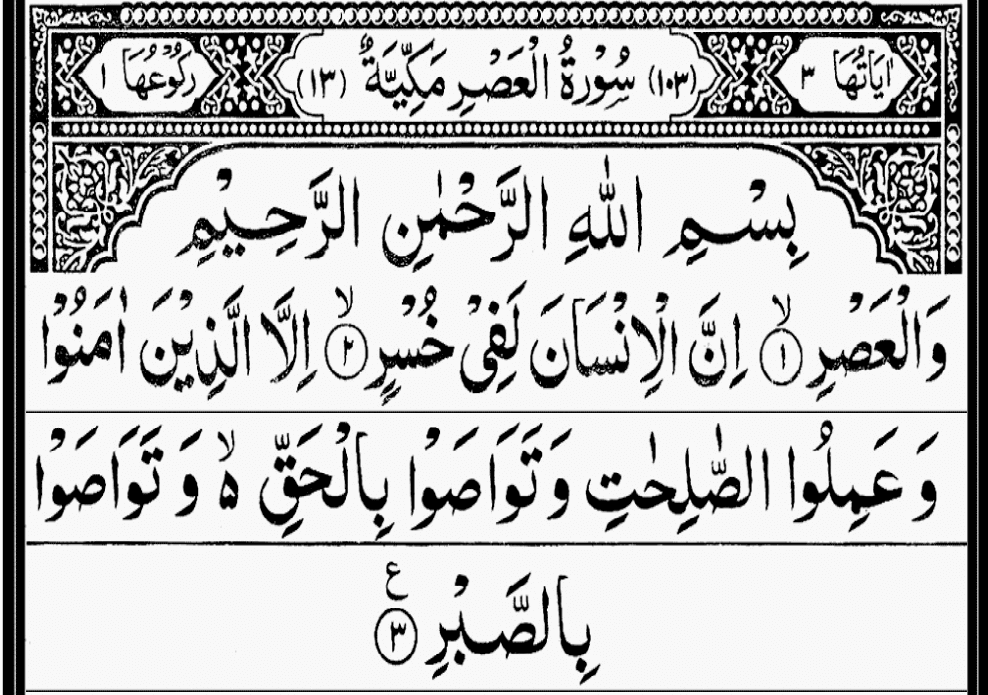 اٰيَاتُهَا ٣ (١٠٣) سُوْرَةُ الْعَصْرِ مَكِّيَّةٌ (١٣) رَكُوْعُهَا ١
بِسْمِ اللّٰهِ الرَّحْمٰنِ الرَّحِيْمِ
وَالْعَصْرِ ۙ﴿١﴾ اِنَّ الْاِنْسَانَ لَفِیْ خُسْرٍ ۙ﴿٢﴾ اِلَّا الَّذِيْنَ اٰمَنُوْا
وَ عَمِلُوا الصّٰلِحٰتِ وَ تَوَاصَوْا بِالْحَقِّ ۙ۵ وَ تَوَاصَوْا
بِالصَّبْرِ ﴿٣﴾ ع